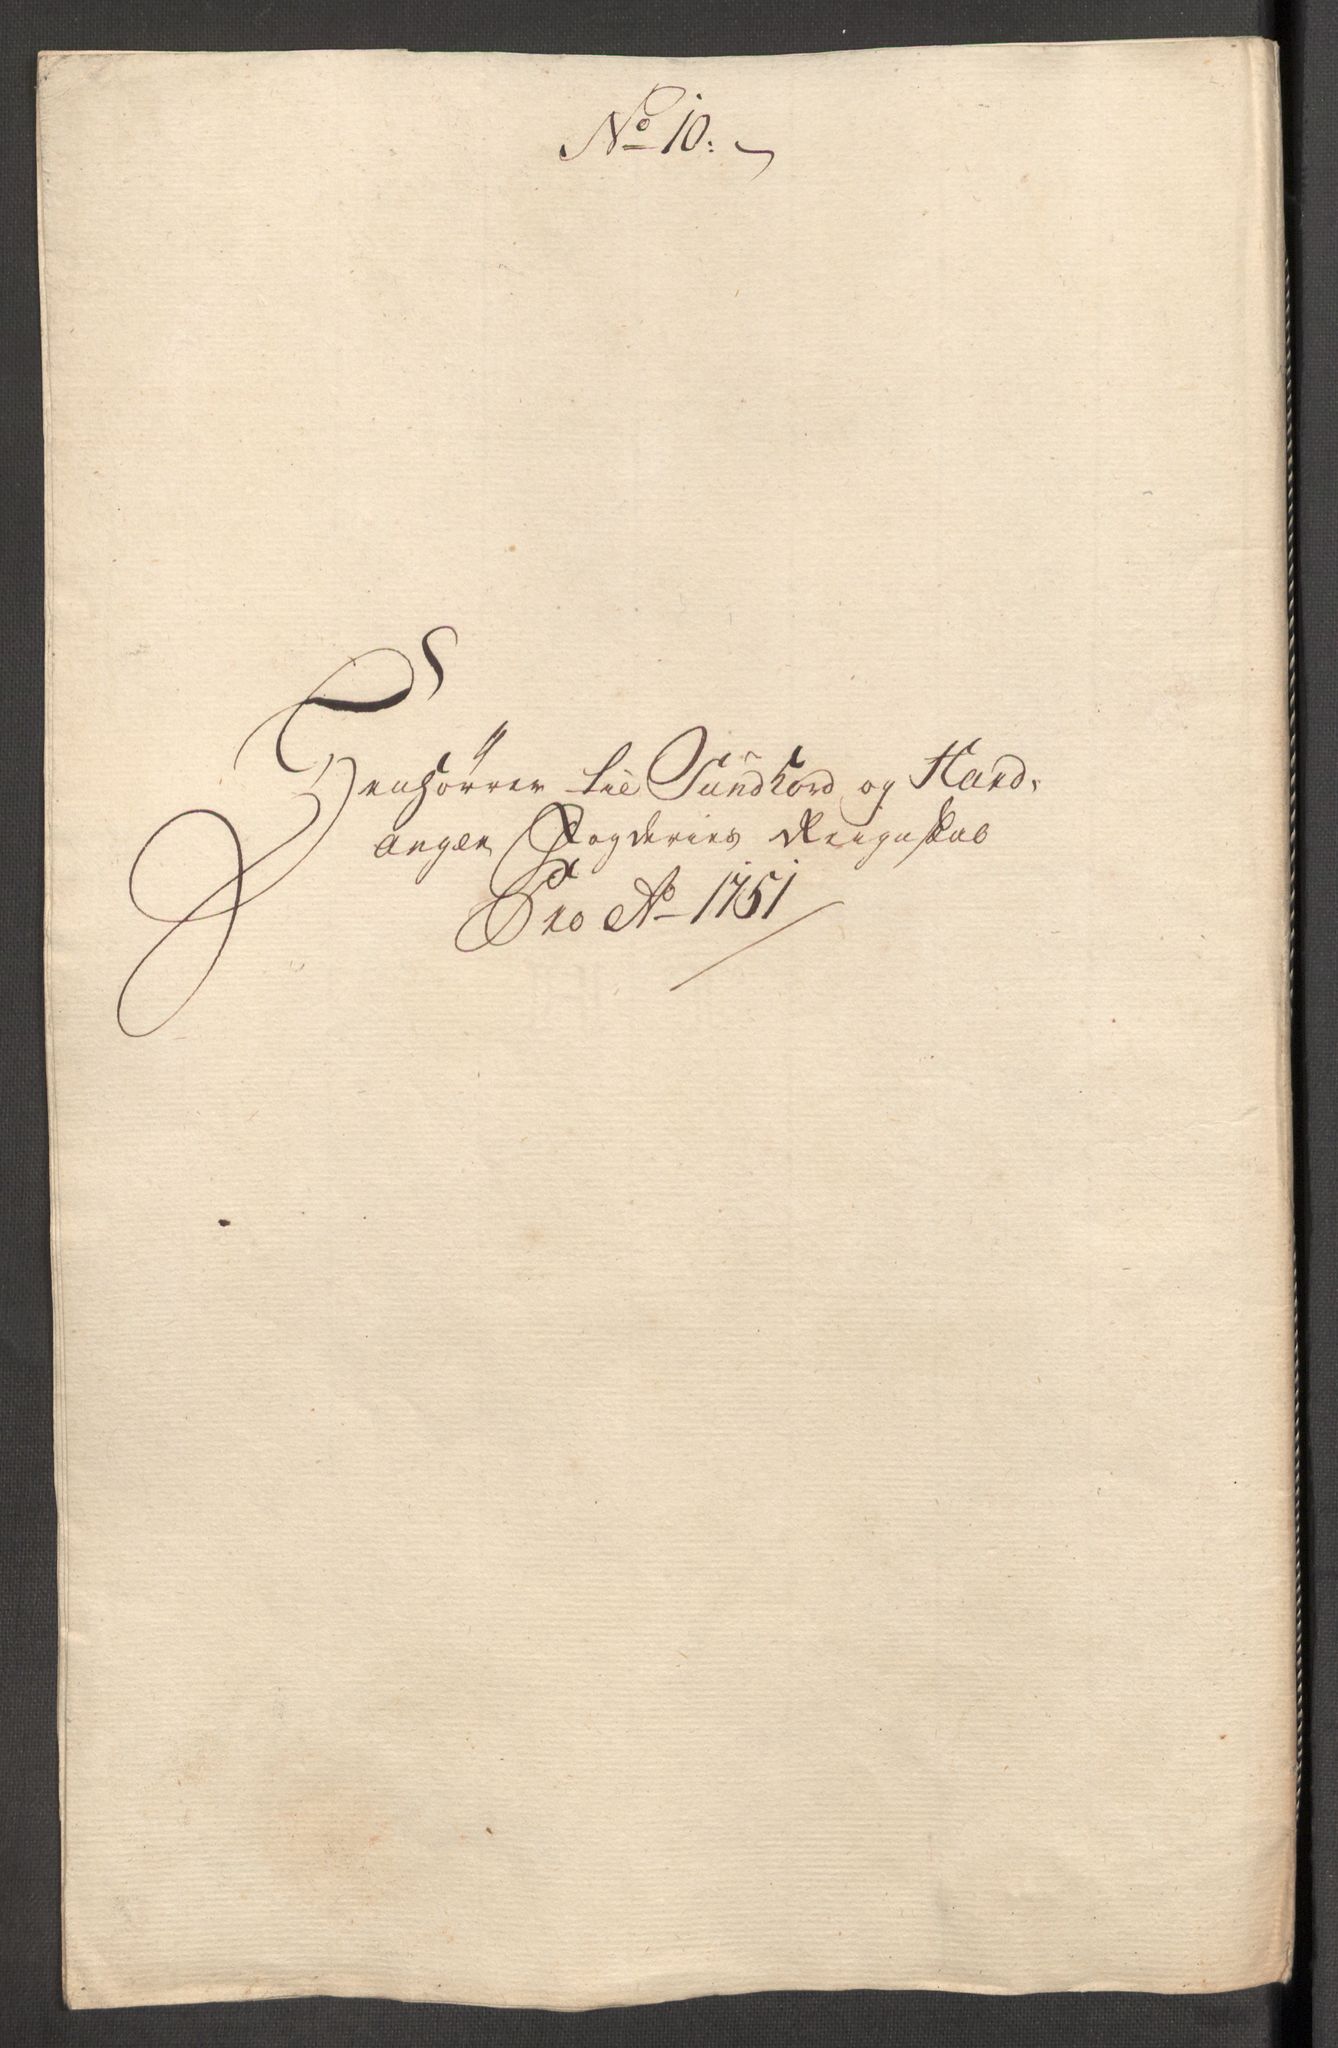 No 10.
Henhörrer til Sundhord og Hard-
anger Fogderies Reignskab
Pro Ao 1751